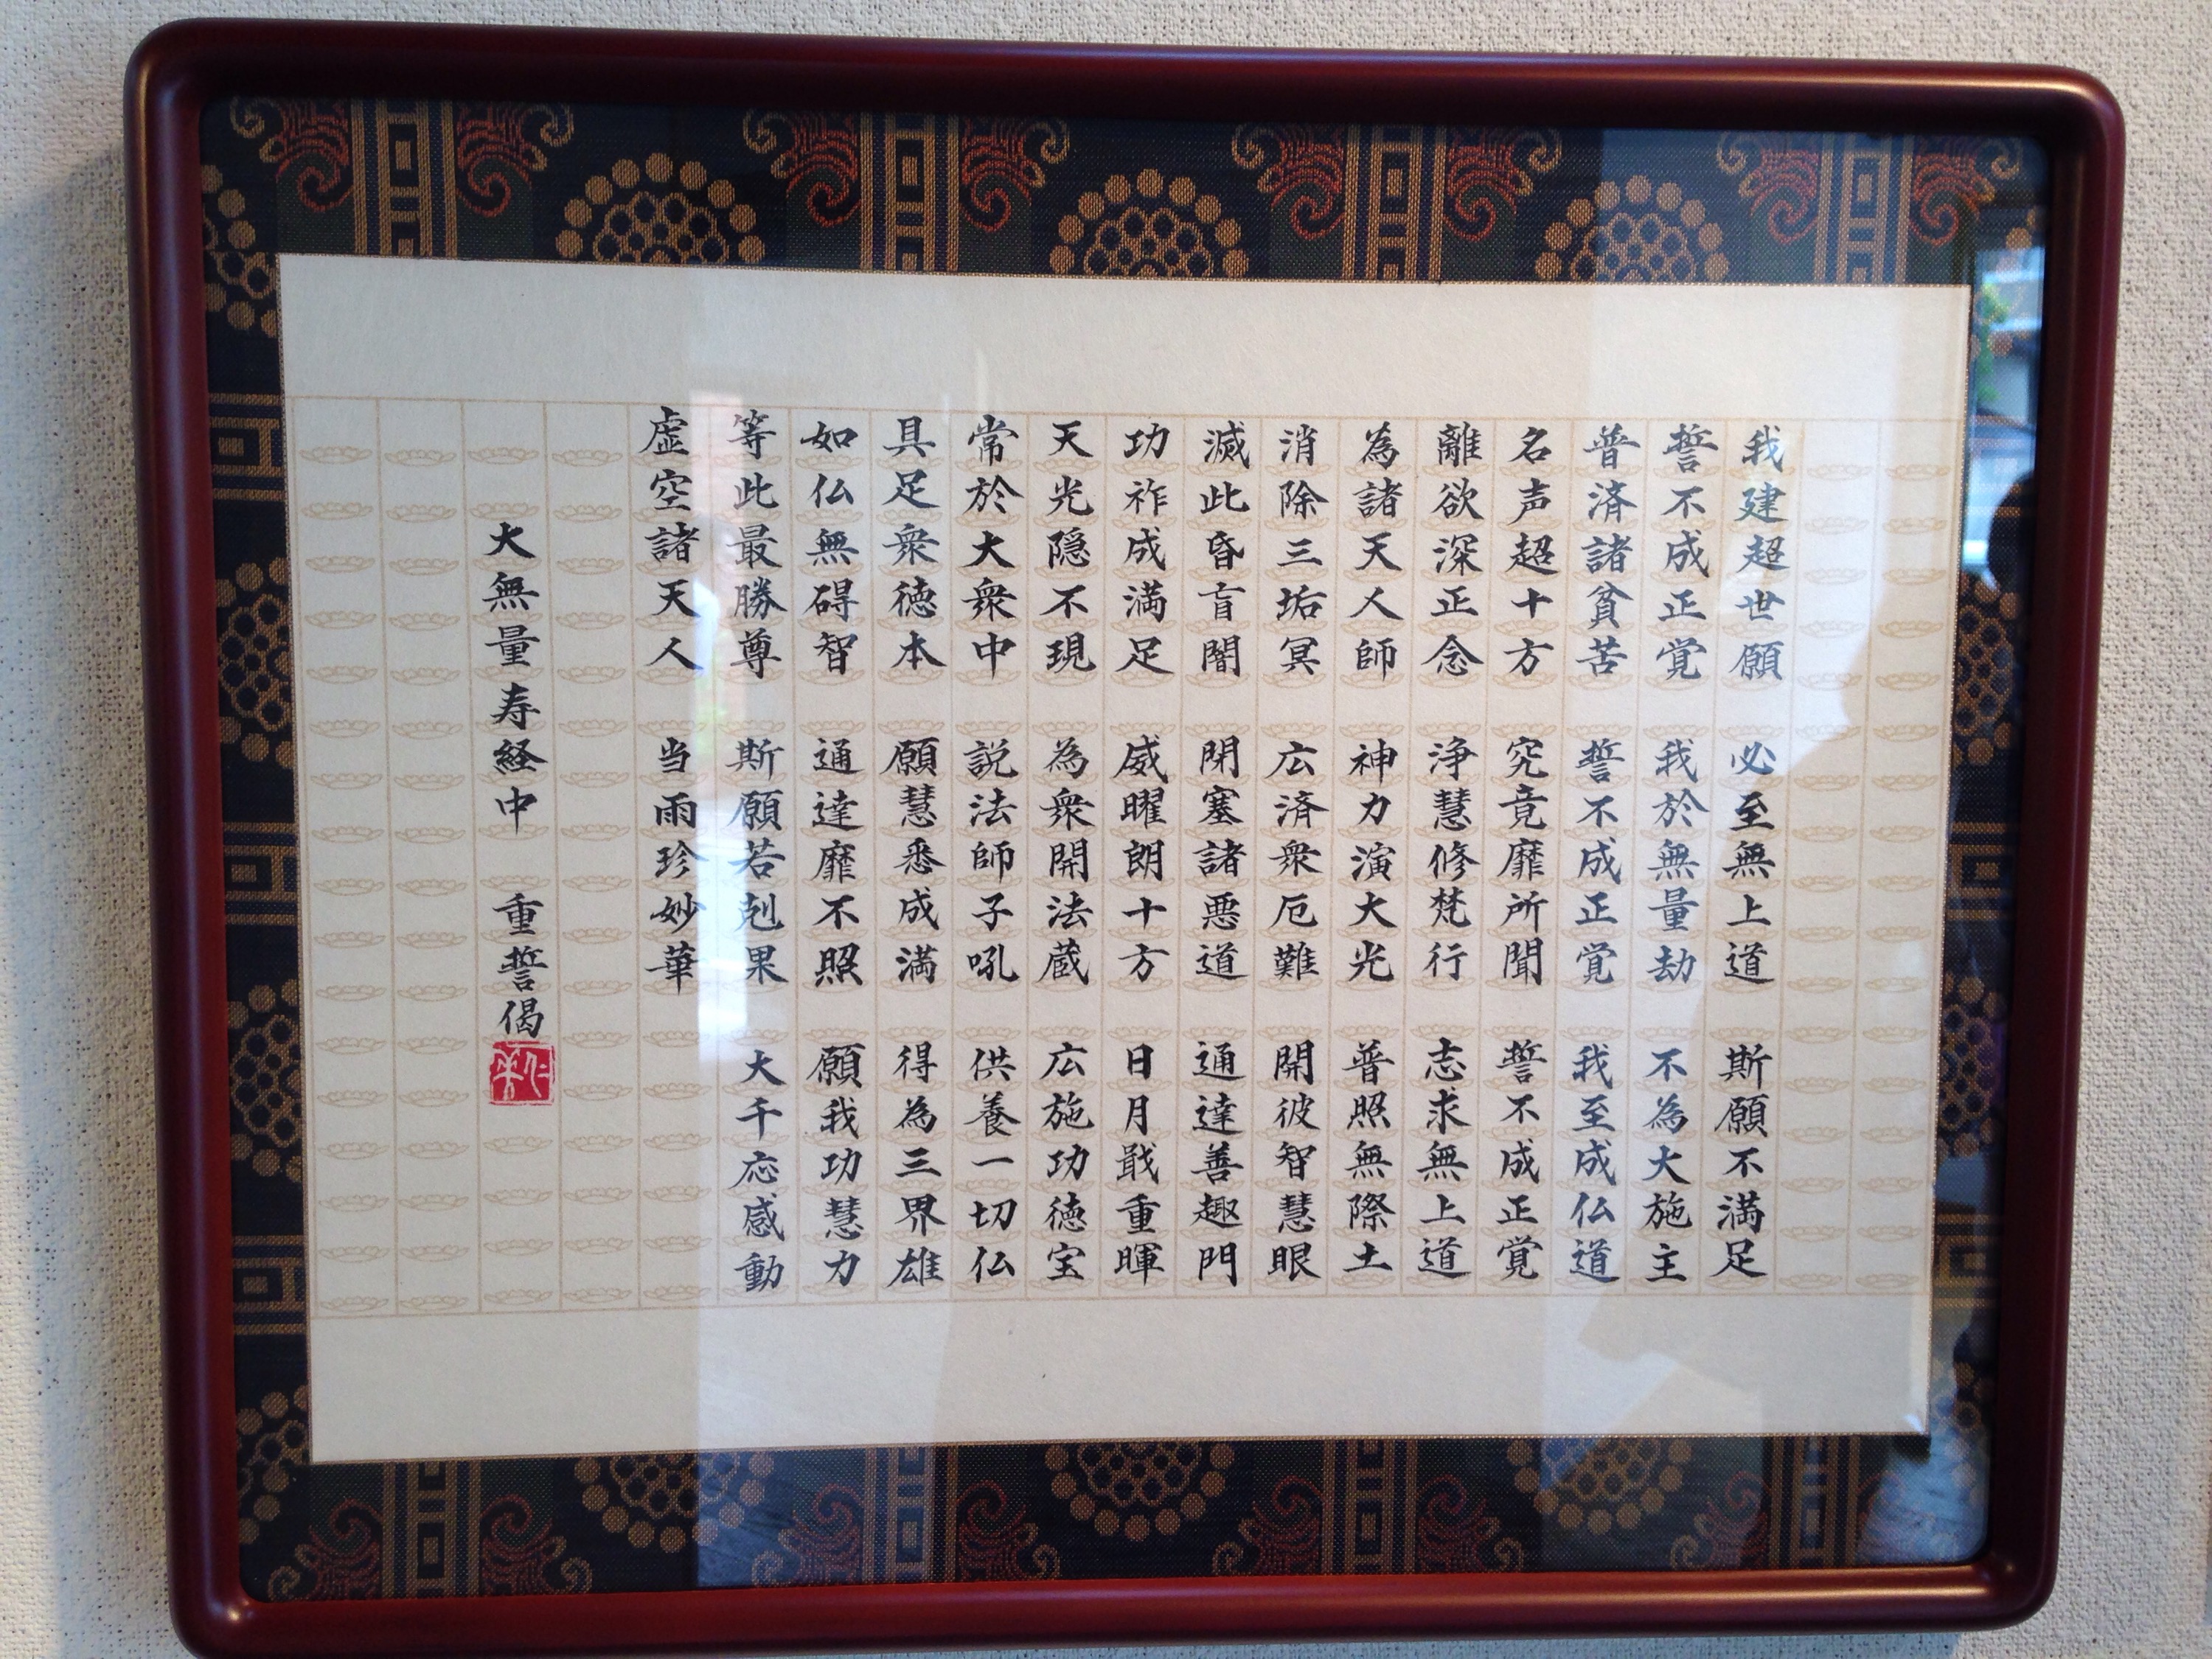 我建超世願　必至無上道　斯願不満足
誓不成正覚　我於無量劫　不為大施主
普済諸貧苦　誓不成正覚　我至成仏道
名声超十方　究竟靡所聞　誓不成正覚
離欲深正念　浄慧修梵行　志求無上道
為諸天人師　神力演大光　普照無際土
消除三垢冥　広済衆厄難　開彼智慧眼
滅此昏盲闇　閉塞諸悪道　通達善趣門
功祚成満足　威曜朗十方　日月戢重暉
天光隠不現　為衆開法蔵　広施功徳宝
常於大衆中　説法師子吼　供養一切仏
具足衆徳本　願慧悉成満　得為三界雄
如仏無碍智　通達靡不照　願我功慧力
等此最勝尊　斯願若剋果　大千応感動
虚空諸天人　当雨珍妙華
大無量寿経中　重誓偈